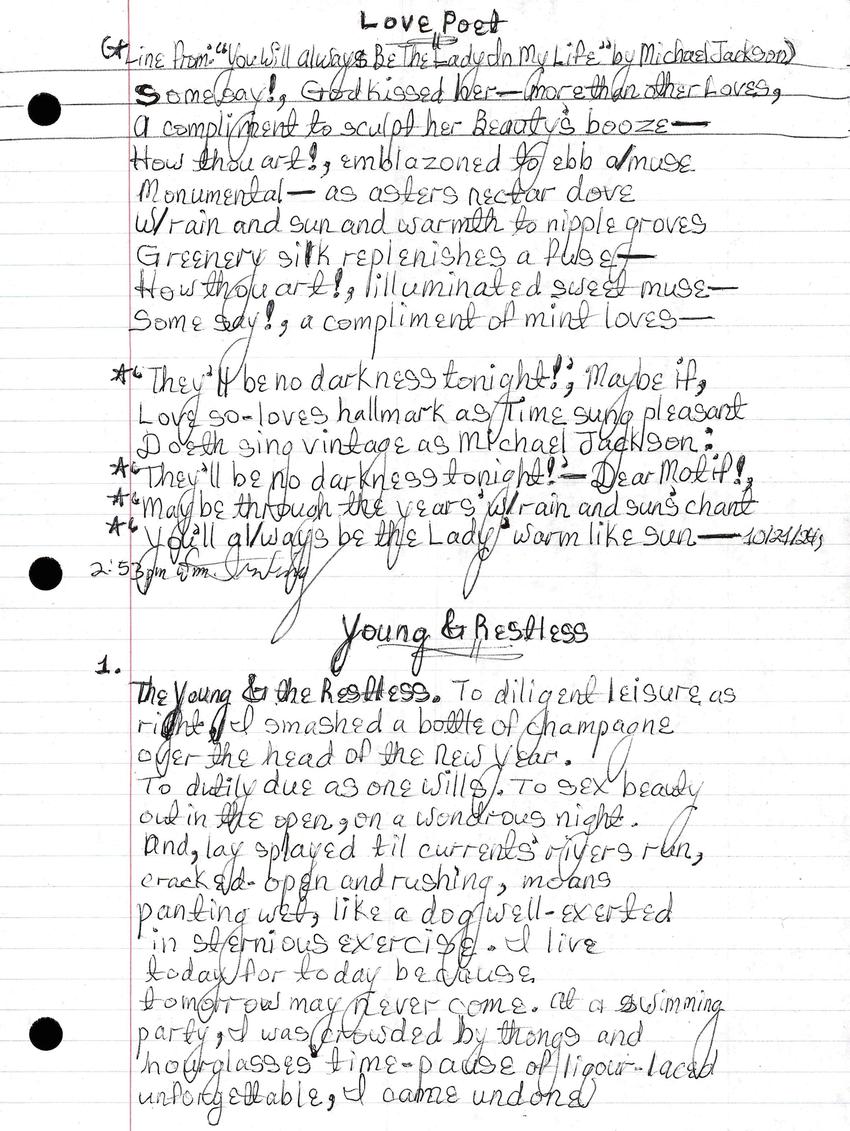 Love Poet
(*Line from: "You Will always Be The Lady In My Life" by Michael Jackson)
Some say!, God kissed her— more than other Loves,
a compliment to sculpt her Beauty's booze—
How thou art!, emblazoned to ebb a/muse
Monumental— as asters nectar dove
w/rain and sun and warmth to nipple groves
Greenery silk replenishes a fuse—
How thou art!, illuminated sweet muse—
Some say!, a compliment of mint loves—
*"They'll be no darkness tonight!", Maybe if,
Love so-loves hallmark as Time sung pleasant
Doeth sing vintage as Michael Jackson:
*"They'll be no darkness tonight!"— Dear Motif!,
*"May be through the years" w/rain and sun's chant
*"You'll always be the Lady" warm like sun— 10/21/24,
2:53pm
Young & Restless
1.
The Young & the Restless. To diligent leisure as
right, I smashed a bottle of champagne
over the head of the new year.
To dutily due as one wills. To sex beauty
out in the open, on a wondrous night.
And, lay splayed til currents' rivers run,
cracked-open and rushing, moans
panting wet, like a dog well-exerted
in sternious exercise. I live
today for today because
tomorrow may never come. At a swimming
party, I was crowded by thongs and
hourglasses' time-pause of ligour-laced
unforgettable, I came undone